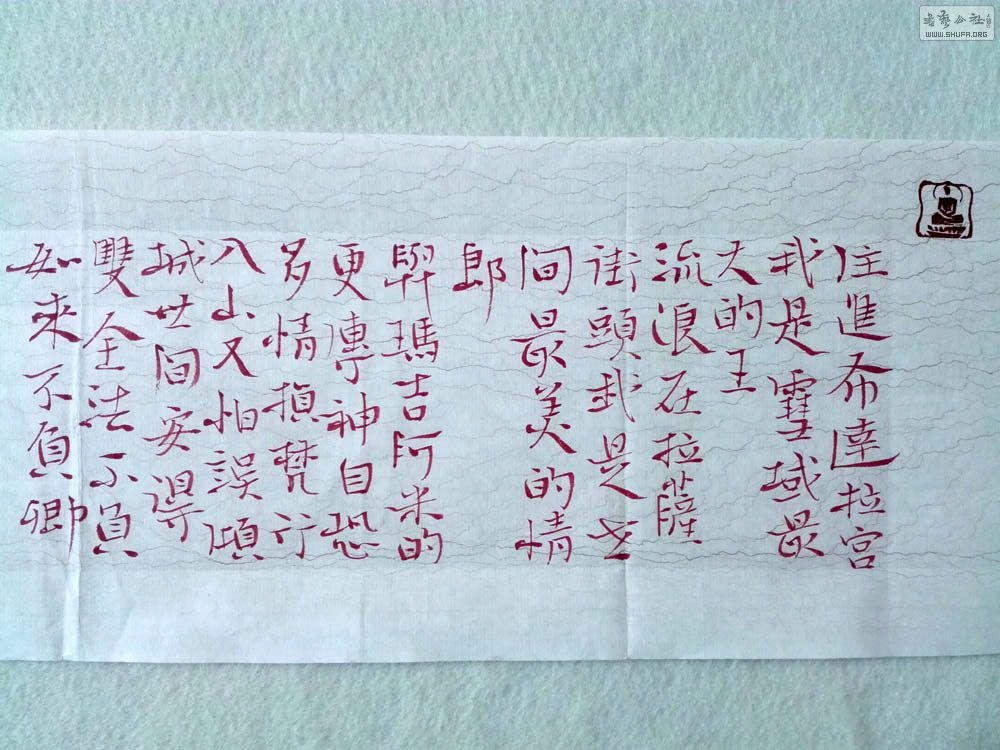 住進布達拉宮
我是雪域最
大的王
流浪在拉薩
街頭我是世
間最美的情
郎
瑪吉阿米的
更傳神自恐
多情損梵行
入山又怕誤傾
城世間安得
雙全法不負
如來不負卿
書藝公社
WWW.SHUFA.ORG